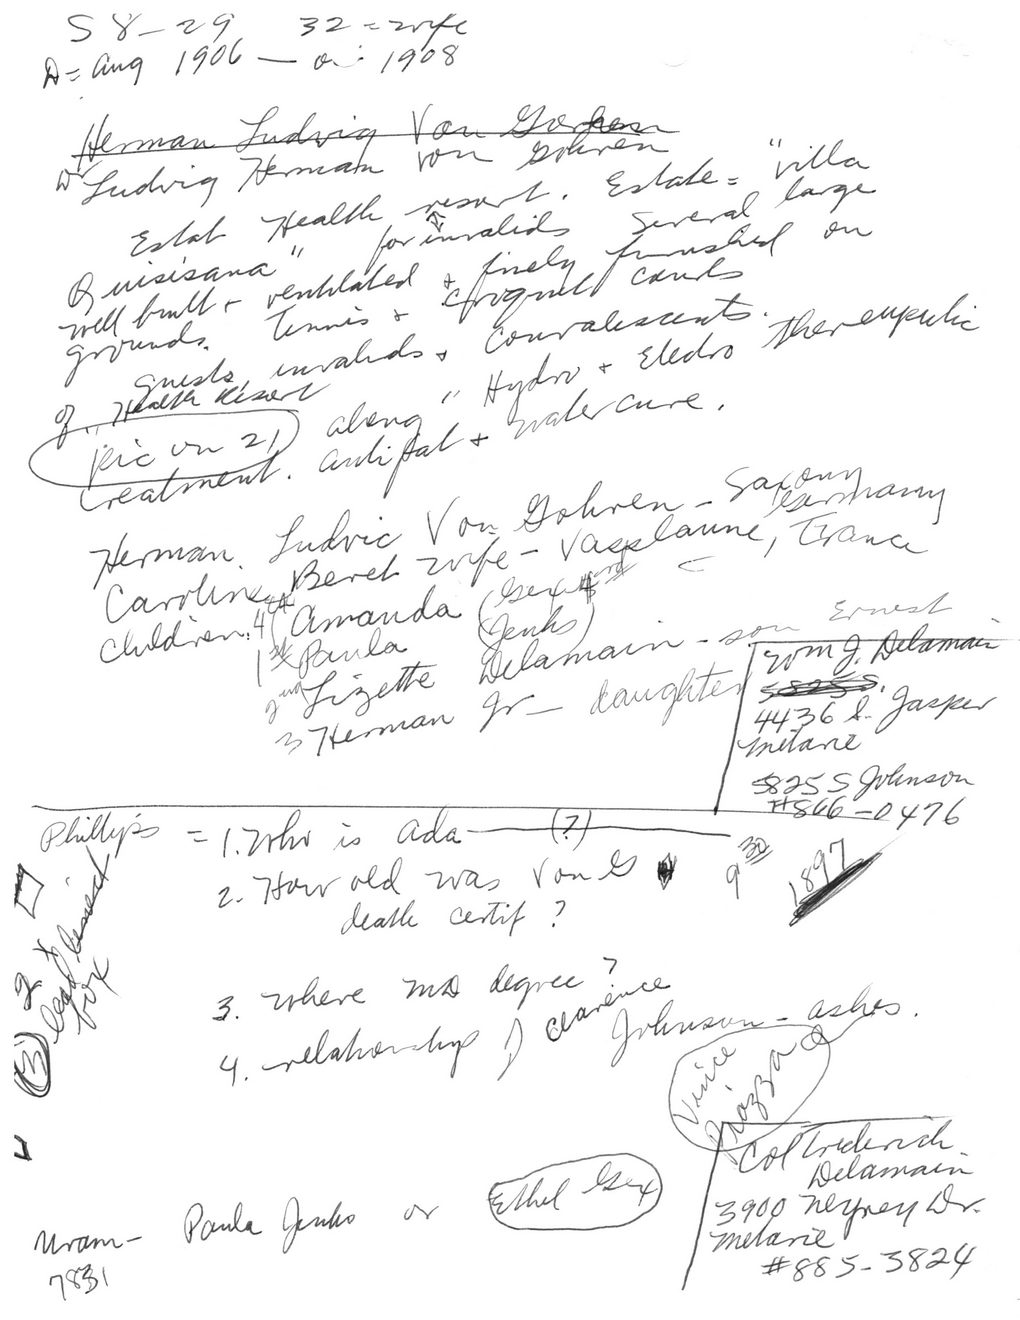 58-29 32 = wife
D = Aug 1906 — or 1908
Herman Ludwig Von Gohren
Dr Ludwig Herman von Gohren
Estab Health resort. Estate = "Villa
Quisisana" for invalids Several large
well built + ventilated + finely furnished on
grounds. Tennis + croquet courts
Guests, invalids + convalescents.
of "Health Resort
Pic on 21
along "Hydro + Electro therapeutic
treatment. antifat + watercure.
Herman Ludvic Von Gohren - Saxony
Germany
Caroline Beret wife - France
children: 4th Amanda (Gex) 3rd
1st Paula (Jenks)
2nd Lizette Delamain - son Ernest
3 Herman Jr - daughter
Wm J. Delamain
5825 S.
4436 S. Jasper
Metarie
5825 S Johnson
#866-0476
Phillips = 1. Who is Ada (?)
9 30
1897
2. How old was Von G
death certif?
3. Where MD degree?
4. relationship of Clarence Johnson - ashes.
2 x
lead
box
3
Vince
Piazza
Col Frederick
Delamain
3900 Neyrey Dr.
Metarie
#885-3824
Paula Jenks or Ethel Gex
7831